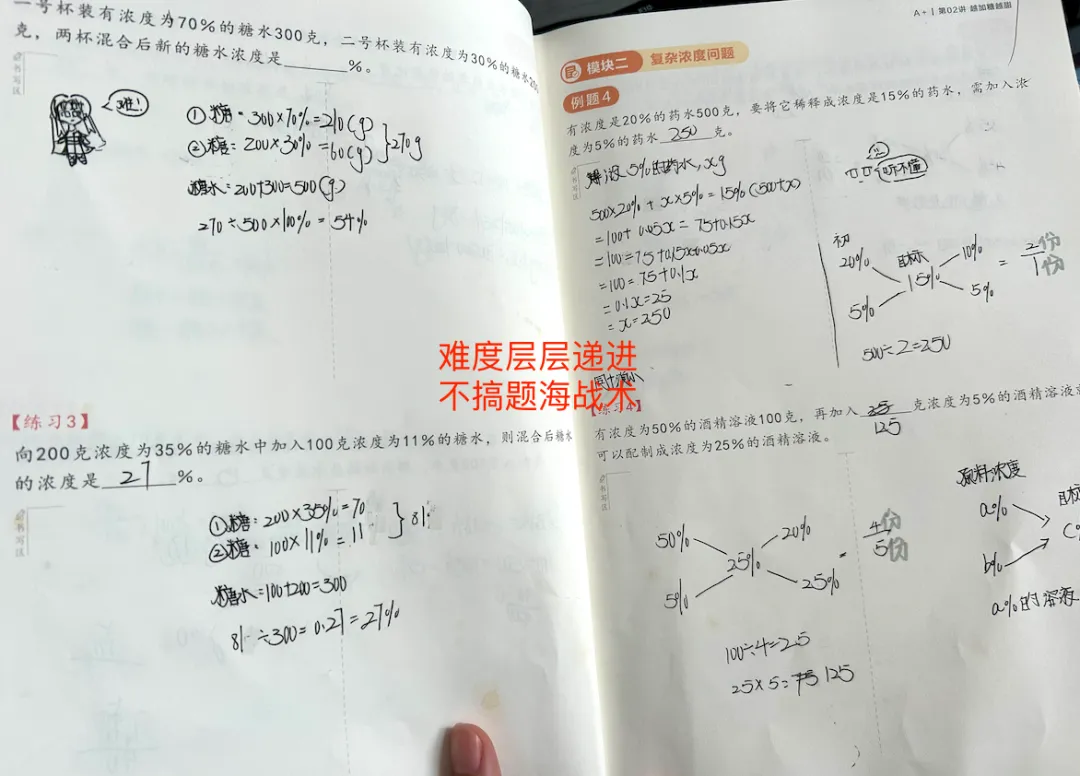 一号杯装有浓度为70%的糖水300克，二号杯装有浓度为30%的糖水200
克，两杯混合后新的糖水浓度是______%。
书写区
难!
①糖：300×70%=210(g)
②糖：200×30%=60(g) }270g
糖水=200+300=500(g)
270÷500×100%=54%
【练习3】
向200克浓度为35%的糖水中加入100克浓度为11%的糖水，则混合后糖水
的浓度是 27 %。
书写区
①糖：200×35%=70
②糖：100×11%=11 }81
糖水=100+200=300
81÷300=0.27=27%
难度层层递进
不搞题海战术
A+ | 第02讲 越加糖越甜
模块二 复杂浓度问题
例题4
有浓度是20%的药水500克，要将它稀释成浓度是15%的药水，需加入浓
度为5%的药水 250 克。
书写区
解设5%的药水,xg
500×20%+x×5%=15%(500+x)
=100+0.05x=75+0.15x
=100=75+0.15x-0.05x
=100=75+0.1x
=0.1x=25
=x=250
听不懂
初
20% 目标 10%
15% = 2份
5% 5% 1份
500÷2=250
【练习4】
有浓度为50%的酒精溶液100克，再加入 125 克浓度为5%的酒精溶液
可以配制成浓度为25%的酒精溶液。
书写区
50% 20%
25% = 4份
5% 25% 5份
100÷4=25
25×5=75 125
原料浓度
a% 目标
c%
b%
a%的溶液